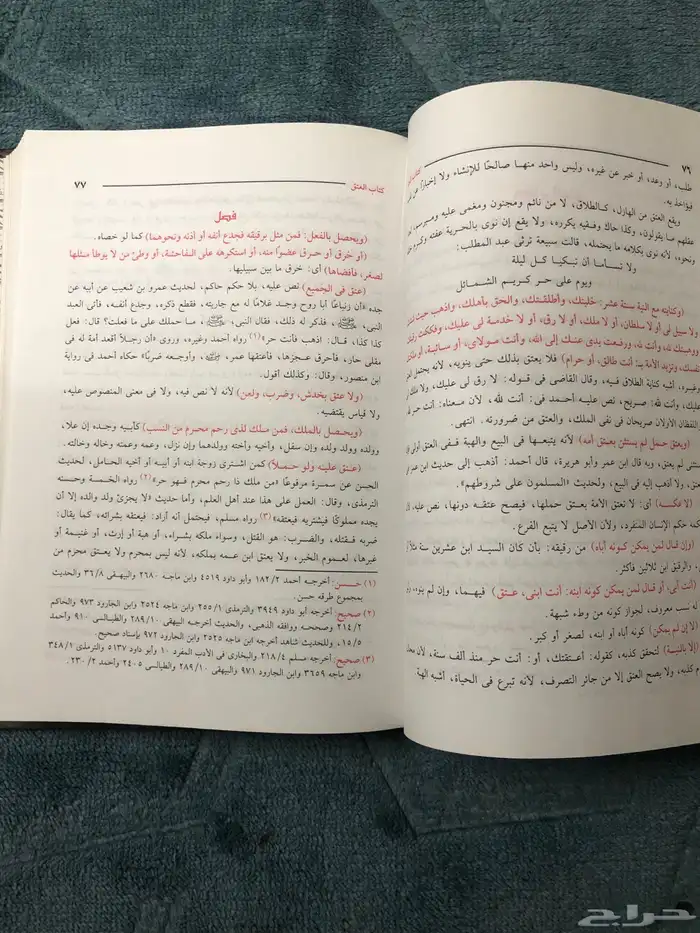 ٧٦
كتاب
طلب، أو وعد، أو خبر عن غيره، وليس واحد منها صالحًا للإنشاء ولا إخبارًا عن
فيؤاخذ به.
ويقع العتق من الهازل، كالطلاق، لا من نائم ومجنون ومغمى عليه ومبرسم،
عقلهم ما يقولون، وكذا حاك وفقيه يكرره، ولا يقع إن نوى بالحرية عفته وكرم
ونحوه، لأنه نوى بكلامه ما يحتمله، قالت سبيعة ترثى عبد المطلب:
ولا تسأما أن تبكيا كل ليلة
ويوم على حر كريم الشمائل
(وكنايته مع النية ستة عشر: خليتك، وأطلقتك، والحق بأهلك، واذهب حيث
ولا سبيل لى أو لا سلطان، أو لا ملك، أو لا رق، أو لا خدمة لى عليك، وفككت
ووهبتك لله، وأنت لله، ورفعت يدى عنك إلى الله، وأنت مولاى، أو سائبة،
نفسك، وتزيد الأمة بـ: أنت طالق، أو حرام) فلا يعتق بذلك حتى ينويه، لأنه يحتمل
وغيره، أشبه كناية الطلاق فيه، وقال القاضى فى قوله: لا رق لى عليك، ولا ملك
عليك، وأنت لله: صريح، نص عليه أحمد فى: أنت لله، لأن معناه: أنت حر
اللفظان الأولان صريحان فى نفى الملك، والعتق من ضرورته. انتهى.
(ويعتق حمل لم يستثن بعتق أمه) لأنه يتبعها فى البيع والهبة ففى العتق أولى
لم يعتق، وبه قال ابن عمر وأبو هريرة، قال أحمد: أذهب إلى حديث ابن عمر
ولا أذهب إليه فى البيع، ولحديث «المسلمون على شروطهم».
(لا عكسه) أى: لا تعتق الأمة بعتق حملها، فيصح عتقه دونها، نص عليه،
حكم الإنسان المنفرد، ولأن الأصل لا يتبع الفرع.
(وإن قال لمن يمكن كونه أباه) من رقيقه: بأن كان السيد ابن عشرين سنة
والرقيق ابن ثلاثين فأكثر.
(أنت أبى، أو قال لمن يمكن كونه ابنه: أنت ابنى، عتق) فيهما، وإن لم
له نسب معروف، لجواز كونه من وطء شبهة.
(لا إن لم يمكن) كونه أباه أو ابنه، لصغر أو كبر.
(إلا بالنية) لتحقق كذبه، كقوله: أعتقتك، أو: أنت حر منذ ألف سنة، لأنه
كذبه، ولا يصح العتق إلا من جائز التصرف، لأنه تبرع فى الحياة، أشبه الهبة.
كتاب العتق
٧٧
فصل
(ويحصل بالفعل: فمن مثل برقيقه فجدع أنفه أو أذنه ونحوهما) كما لو خصاه.
(أو خرق أو حرق عضوًا منه، أو استكرهه على الفاحشة، أو وطئ من لا يوطأ مثلها
لصغر، فأفضاها) أى: خرق ما بين سبيليها.
(عتق فى الجميع) نص عليه، بلا حكم حاكم، لحديث عمرو بن شعيب عن أبيه عن
جده «أن زنباعًا أبا روح وجد غلامًا له مع جاريته، فقطع ذكره، وجدع أنفه، فأتى العبد
النبى، ﷺ، فذكر له ذلك، فقال النبى، ﷺ، ما حملك على ما فعلت؟ قال: فعل
كذا كذا، قال: اذهب فأنت حر»(١) رواه أحمد وغيره، وروى «أن رجلاً أقعد أمة له فى
مقلى حار، فأحرق عجزها، فأعتقها عمر، وأوجعه ضربًا» حكاه أحمد فى رواية
ابن منصور، وقال: وكذلك أقول.
(ولا عتق بخدش، وضرب، ولعن) لأنه لا نص فيه، ولا فى معنى المنصوص عليه،
ولا قياس يقتضيه.
(ويحصل بالملك، فمن ملك لذى رحم محرم من النسب) كأبيه وجده إن علا،
وولده وولد ولده وإن سفل، وأخيه وأخته وولدهما وإن نزل، وعمه وعمته وخاله وخالته.
(عتق عليه ولو حملاً) كمن اشترى زوجة ابنه أو أبيه أو أخيه الحامل، لحديث
الحسن عن سمرة مرفوعًا «من ملك ذا رحم محرم فهو حر»(٢) رواه الخمسة وحسنه
الترمذى، وقال: العمل على هذا عند أهل العلم، وأما حديث «لا يجزئ ولد والده إلا أن
يجده مملوكًا فيشتريه فيعتقه»(٣) رواه مسلم، فيحتمل أنه أراد: فيعتقه بشرائه، كما يقال:
ضربه فقتله، والضرب: هو القتل، وسواء ملكه بشراء، أو هبة أو إرث، أو غنيمة أو
غيرها، لعموم الخبر، ولا يعتق ابن عمه بملكه، لأنه ليس بمحرم ولا يعتق محرم من
(١) حسن: أخرجه أحمد ١٨٢/٢ وأبو داود ٤٥١٩ وابن ماجه ٢٦٨٠ والبيهقى ٣٦/٨ والحديث
بمجموع طرقه حسن.
(٢) صحيح: أخرجه أبو داود ٣٩٤٩ والترمذى ٢٥٥/١ وابن ماجه ٢٥٢٤ وابن الجارود ٩٧٣ والحاكم
٢١٤/٢ وصححه ووافقه الذهبى، والحديث أخرجه البيهقى ٢٨٩/١٠ والطيالسى ٩١٠ وأحمد
١٥/٥، وللحديث شاهد أخرجه ابن ماجه ٢٥٢٥ وابن الجارود ٩٧٢ بإسناد صحيح.
(٣) صحيح: أخرجه مسلم ٢١٨/٤ والبخارى فى الأدب المفرد ١٠ وأبو داود ٥١٣٧ والترمذى ٣٤٨/١
وابن ماجه ٣٦٥٩ وابن الجارود ٩٧١ والبيهقى ٢٨٩/١٠ والطيالسى ٢٤٠٥ وأحمد ٢٣٠/٢.
حراج